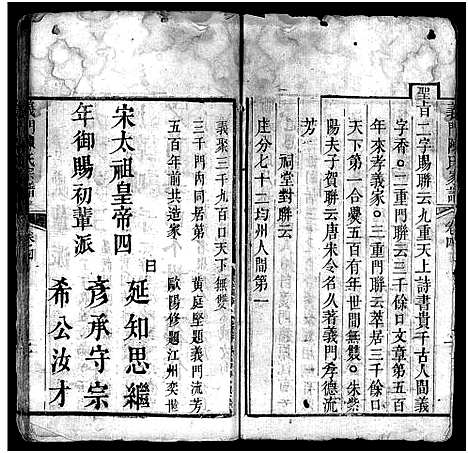 聖旨二字賜聯云九重天上詩書貴千古人間義
字香。二重門聯云三千餘口文章第五百
年來孝義家。三重門聯云萃居三千餘口
天下第一合爨五百有年世間無雙。朱紫
陽夫子賀聯云唐宋令名久著義門孝德流
芳
祠堂對聯云
庄分七十二均州人間第一
義聚三千九百口天下無雙
三千門內同居第 黃庭堅題義門流芳
五百年前共造家 歐陽修題江州奕世
宋太祖皇帝四
年御賜初輩派
曰
延知思繼
彥承守宗
希公汝才
義門陳氏家譜 卷四
義門陳氏家譜 卷四